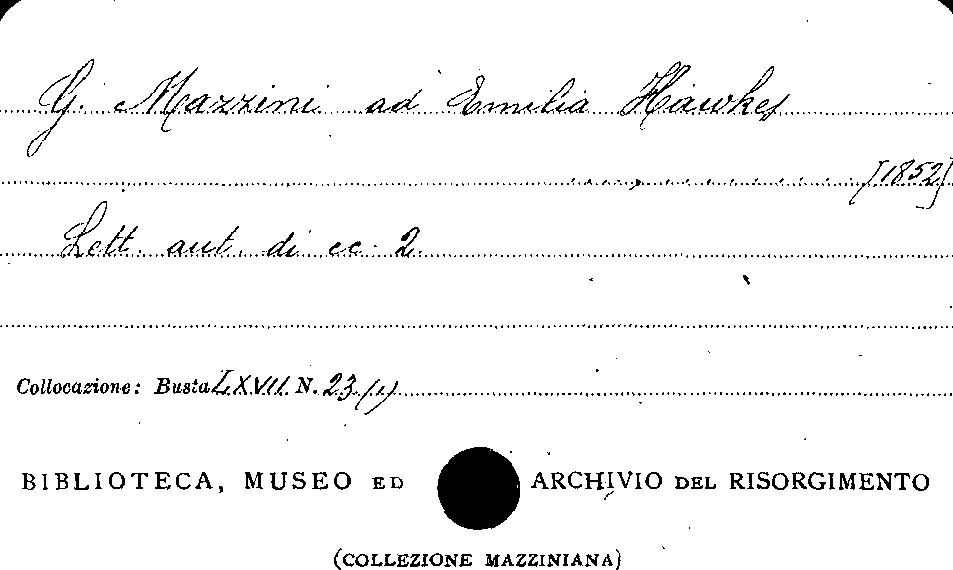 G. Mazzini ad Emilia Hawkes
[1852]
Lett. aut. di cc. 2.
Collocazione: Busta LXVII N. 23 (1)
BIBLIOTECA, MUSEO ED ARCHIVIO DEL RISORGIMENTO
(COLLEZIONE MAZZINIANA)